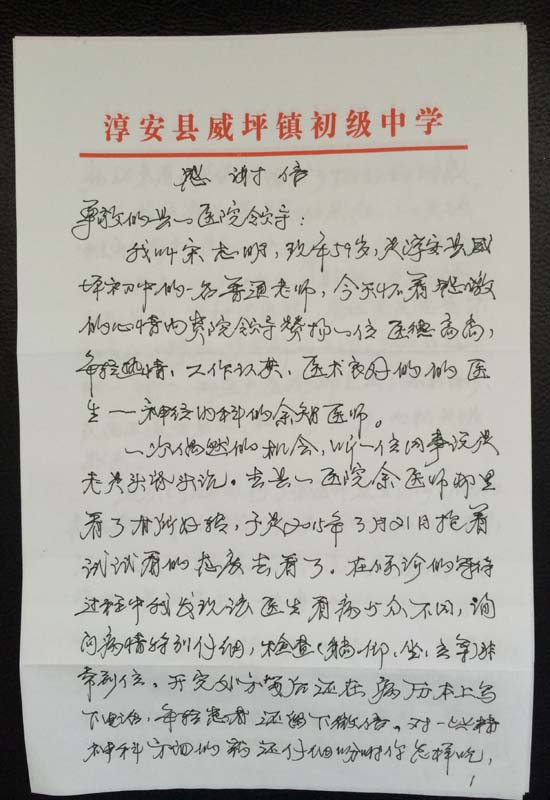 淳安县威坪镇初级中学
感谢信
尊敬的县一医院领导：
我叫宋志明，现年59岁，是淳安县威
坪初中的一名普通老师，今天怀着感激
的心情向贵院领导赞扬一位医德高尚，
年轻热情，工作认真，医术良好的的医
生——神经内科的余智医师。
一次偶然的机会，听一位同事说是
老是头昏头沉。去县一医院余医师那里
看了有所好转，于是2015年3月21日抱着
试试看的态度去看了。在候诊的等待
过程中我发现该医生看病与众不同，询
问病情特别仔细，检查（躺、仰、坐、立等）非
常到位。开完处方笺后还在病历本上写
下电话，年轻患者还留下微信。对一些精
神科方面的药还仔细吩咐你怎样吃，
1